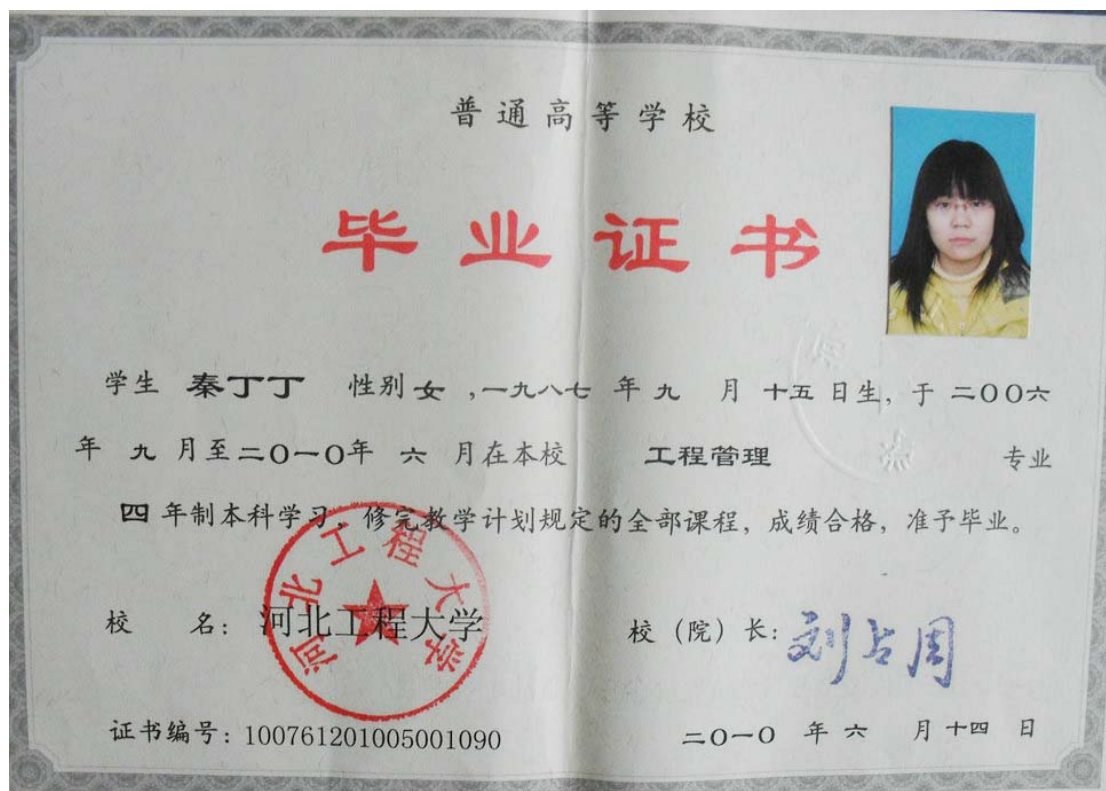 普通高等学校
毕业证书
学生 秦丁丁 性别 女 ,一九八七 年 九 月 十五 日生, 于 二〇〇六
年 九 月至 二〇一〇 年 六 月在本校 工程管理 专业
四 年制本科学习, 修完教学计划规定的全部课程, 成绩合格, 准予毕业。
河北工程大学
校 名: 河北工程大学 校 (院) 长: 刘占周
证书编号: 100761201005001090 二〇一〇 年 六 月 十四 日